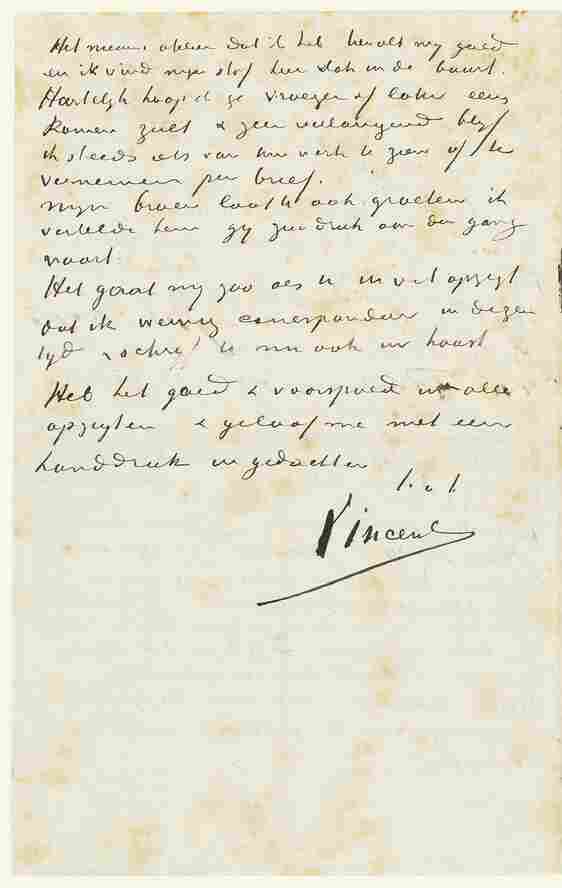 Het nieuws alleen dat ik het bevalt my goed
en ik vind myn stof hier vlak in de buurt.
Hartelyk hoop ik ge vroeger of later eens
komen zult & zeer verlangend blyf
ik steeds iets van uw werk te zien of te
vernemen per brief.
myn broer laat U ook groeten ik
vertelde hem gy zeer druk aan den gang
waart.
Het gaat my zoo als U in veel opzigt
dat ik weinig correspondeer in dezen
tyd & schryf U nu ook in haast
Heb het goed & voorspoed in alle
opzigten & geloof me met een
handdruk in gedachten
t. a. t.
Vincent